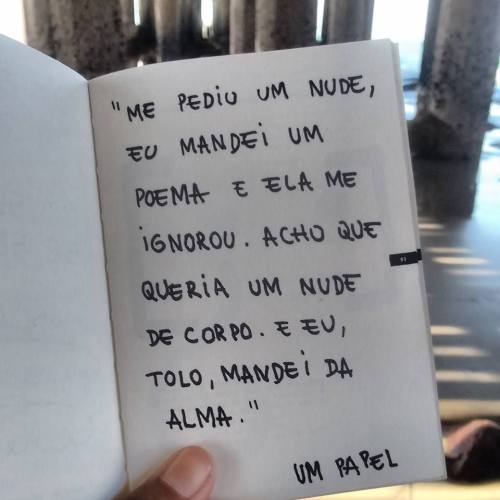 "ME PEDIU UM NUDE,
EU MANDEi UM
POEMA E ELA ME
iGNOROU. ACHO QUE
QUERiA UM NUDE
DE CORPO. E EU,
TOLO, MANDEi DA
ALMA."
UM PAPEL